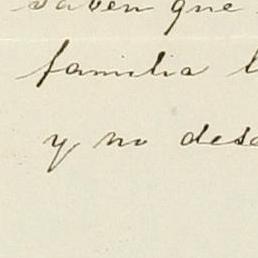 saben que
familia l
y no dese